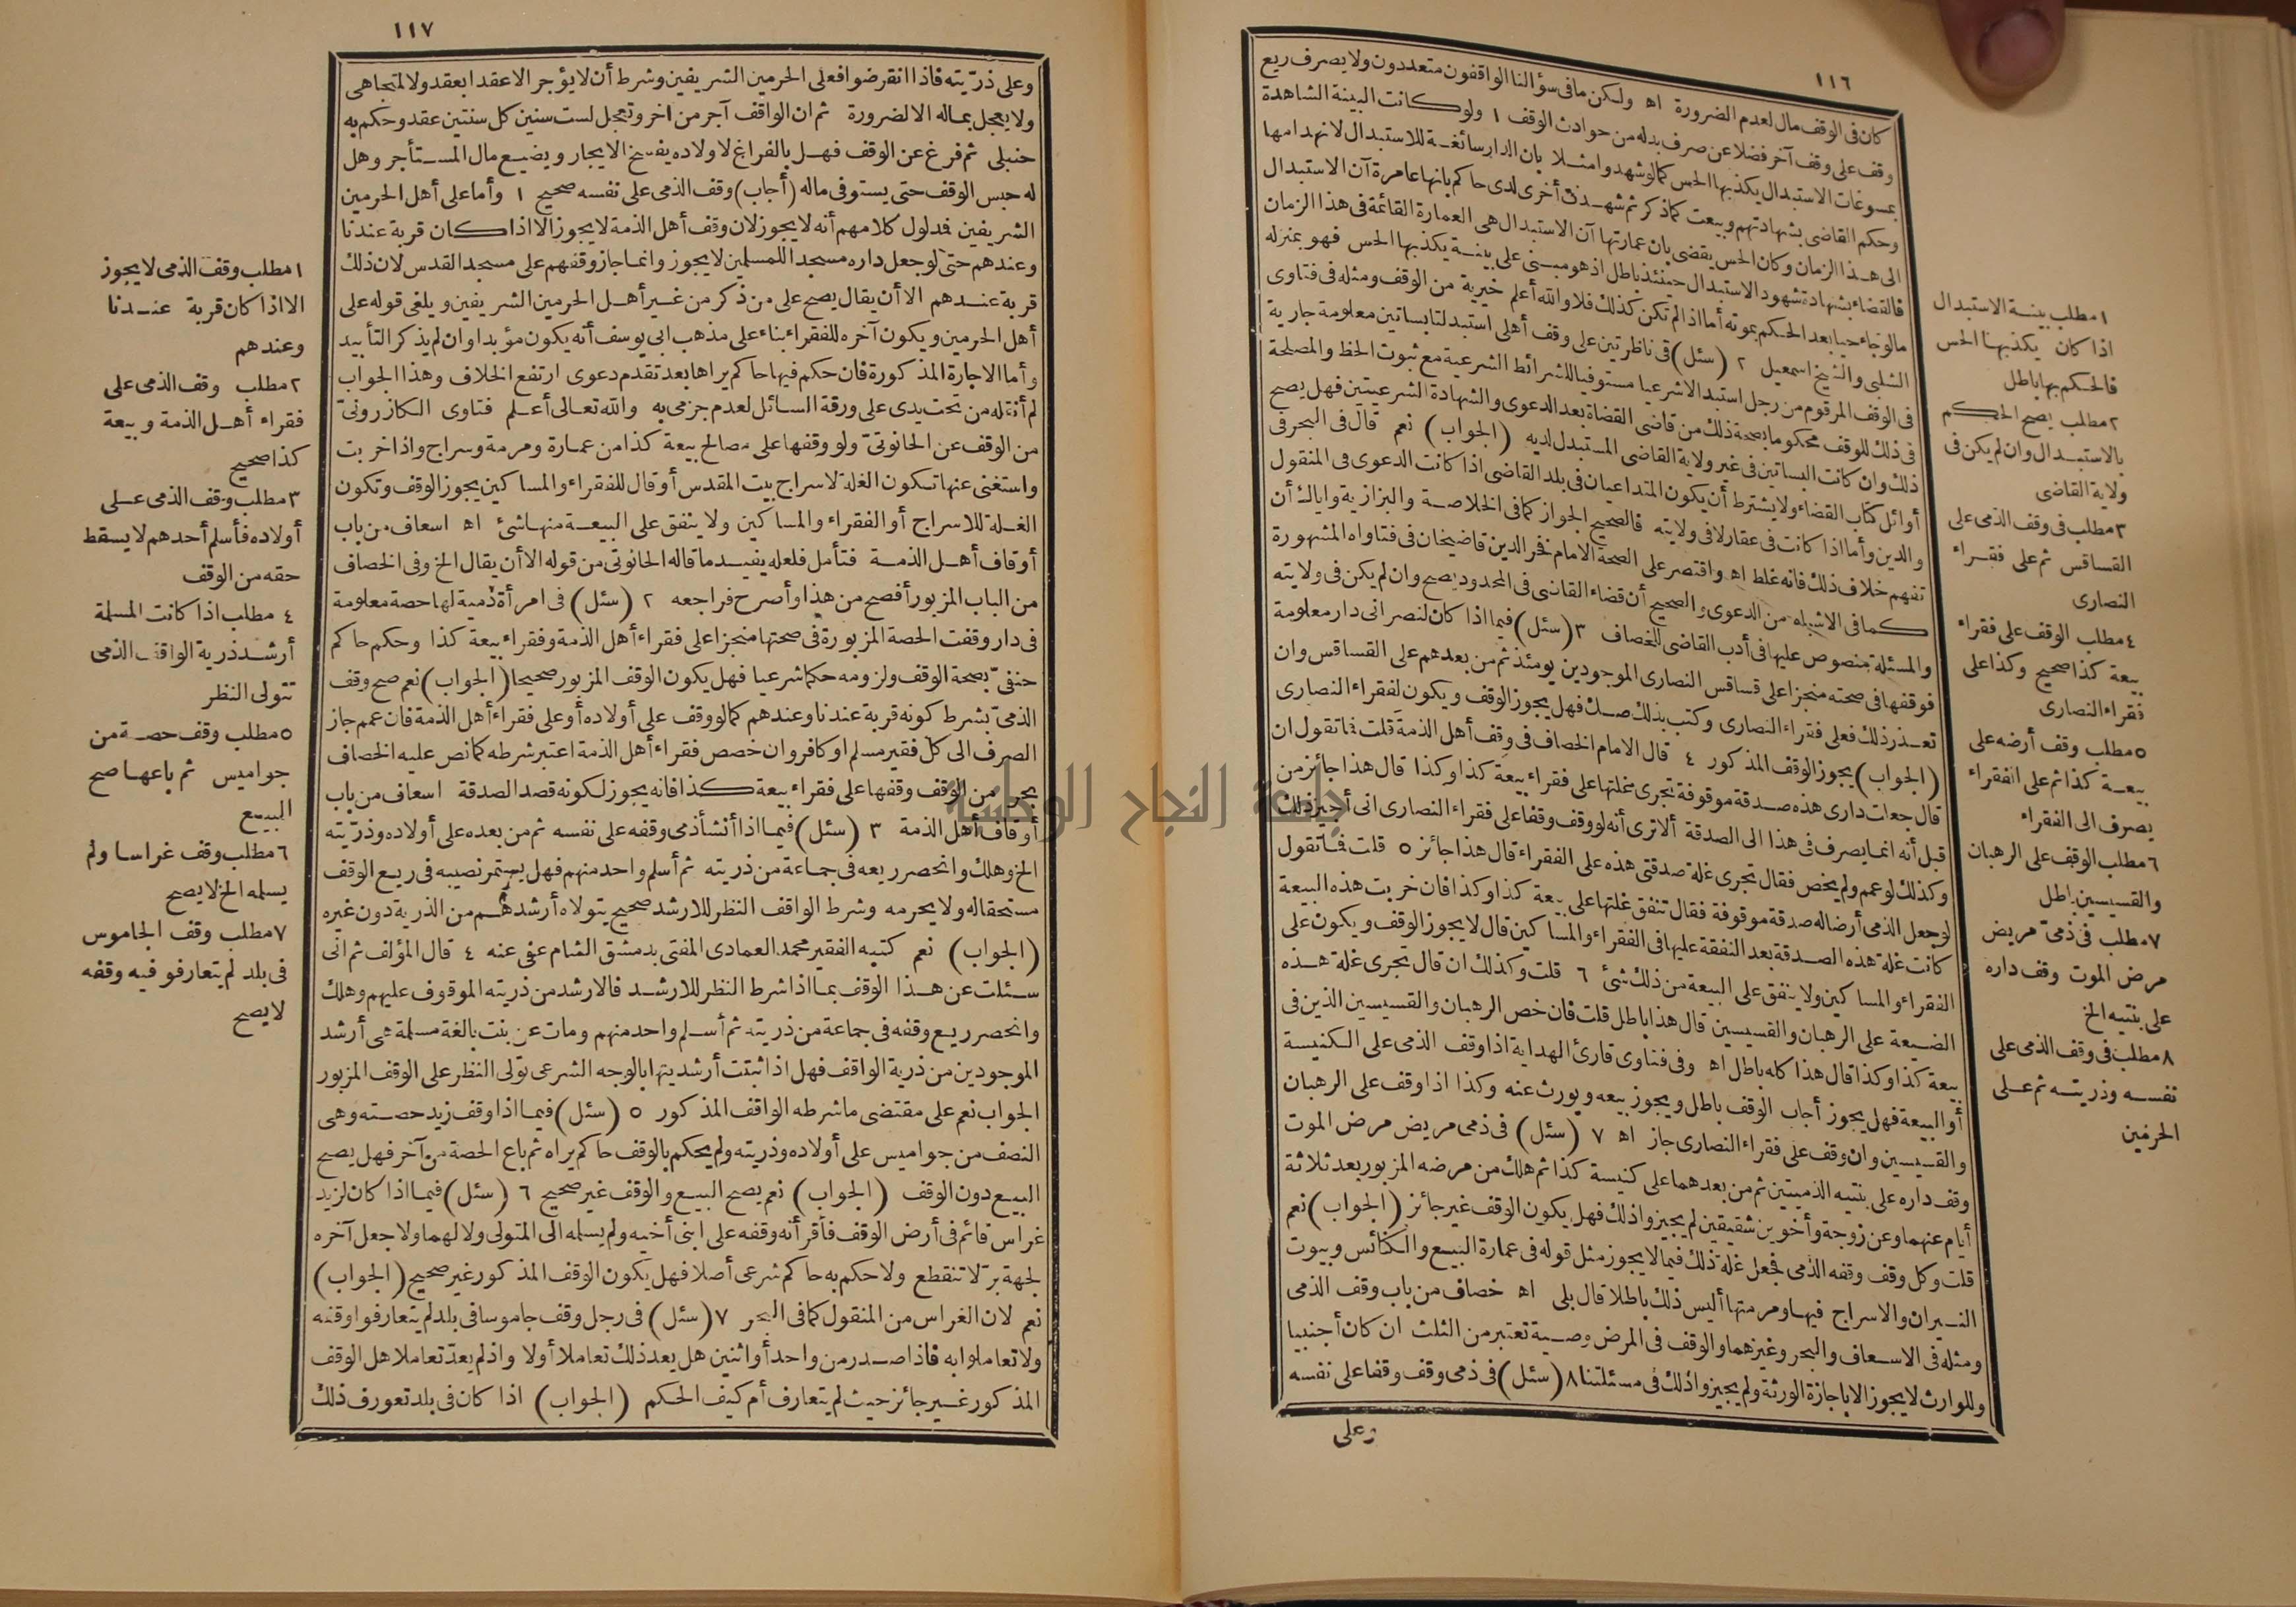 ١١٦
كان فى الوقف مال لعدم الضرورة اه ولكن ما فى سؤالنا الواقفون متعددون ولا يصرف ريع
وقف على وقف آخر فضلا عن صرف بدله من حوادث الوقف ١ ولو كانت البينة الشاهدة
بمسوغات الاستبدال يكذبها الحس كما لو شهدوا مثلا بان الدار سائغة للاستبدال لانهدامها
وحكم القاضى بشهادتهم وبيعت كما ذكر ثم شهدت أخرى لدى حاكم بانها عامرة آن الاستبدال
الى هذا الزمان وكان الحس يقضى بان عمارتها آن الاستبدال هى العمارة القائمة فى هذا الزمان
فالقضاء بشهادة شهود الاستبدال حينئذ باطل اذ هو مبنى على بينة يكذبها الحس فهو بمنزلة
ما لو جاء حيا بعد الحكم بموته أما اذا لم تكن كذلك فلا والله أعلم خيرية من الوقف ومثله فى فتاوى
الشلبى والشيخ اسمعيل ٢ (سئل) فى ناظرتين على وقف أهلى استبدلتا بساتين معلومة جارية
فى الوقف المرقوم من رجل استبدالا شرعيا مستوفيا للشرائط الشرعية مع ثبوت الحظ والمصلحة
فى ذلك للوقف محكوما بصحة ذلك من قاضى القضاة بعد الدعوى والشهادة الشرعيتين فهل يصح
ذلك وان كانت البساتين فى غير ولاية القاضى المستبدل لديه (الجواب) نعم قال فى البحر فى
أوائل كتاب القضاء ولا يشترط أن يكون المتداعيان فى بلد القاضى اذا كانت الدعوى فى المنقول
والدين وأما اذا كانت فى عقار لا فى ولايته فالصحيح الجواز كما فى الخلاصة والبزازية واياك أن
تفهم خلاف ذلك فانه غلط اه واقتصر على الصحة الامام فخر الدين قاضيخان فى فتاواه المشهورة
كما فى الاشباه من الدعوى والصحيح أن قضاء القاضى فى المحدود يصح وان لم يكن فى ولايته
والمسئلة منصوص عليها فى أدب القاضى للخصاف ٣ (سئل) فيما اذا كان لنصرانى دار معلومة
فوقفها فى صحته منجزا على قساقس النصارى الموجودين يومئذ ثم من بعدهم على القساقس وان
تعذر ذلك فعلى فقراء النصارى وكتب بذلك صك فهل يجوز الوقف ويكون لفقراء النصارى
(الجواب) يجوز الوقف المذكور ٤ قال الامام الخصاف فى وقف أهل الذمة قلت فما تقول ان
قال جعلت دارى هذه صدقة موقوفة تجرى غلتها على فقراء بيعة كذا وكذا قال هذا جائز من
قبل أنه انما يصرف فى هذا الى الصدقة ألا ترى أنه لو وقف وقفا على فقراء النصارى انى أجيز ذلك
وكذلك لو عمم ولم يخص فقال تجرى غلة صدقتى هذه على الفقراء قال هذا جائز ٥ قلت فما تقول
لو جعل الذمى أرضا له صدقة موقوفة فقال تنفق غلتها على بيعة كذا وكذا فان خربت هذه البيعة
كانت غلة هذه الصدقة بعد النفقة عليها فى الفقراء والمساكين قال لا يجوز الوقف ويكون على
الفقراء والمساكين ولا ينفق على البيعة من ذلك شئ ٦ قلت وكذلك ان قال تجرى غلة هذه
الضيعة على الرهبان والقسيسين قال هذا باطل قلت فان خص الرهبان والقسيسين الذين فى
بيعة كذا وكذا قال هذا كله باطل اه وفى فتاوى قارئ الهداية اذا وقف الذمى على الكنيسة
أو البيعة فهل يجوز أجاب الوقف باطل ويجوز بيعه ويورث عنه وكذا اذا وقف على الرهبان
والقسيسين وان وقف على فقراء النصارى جاز اه ٧ (سئل) فى ذمى مريض مرض الموت
وقف داره على بنتيه الذميتين ثم من بعدهما على كنيسة كذا ثم هلك من مرضه المزبور بعد ثلاثة
أيام عنهما وعن زوجة وأخوين شقيقين لم يجيزوا ذلك فهل يكون الوقف غير جائز (الجواب) نعم
قلت وكل وقف وقفه الذمى فجعل غلة ذلك فيما لا يجوز مثل قوله فى عمارة البيع والكنائس وبيوت
النيران والاسراج فيها ومرمتها أليس ذلك باطلا قال بلى اه خصاف من باب وقف الذمى
ومثله فى الاسعاف والبحر وغيرهما والوقف فى المرض وصية تعتبر من الثلث ان كان أجنبيا
وللوارث لا يجوز الا باجازة الورثة ولم يجيزوا ذلك فى مسئلتنا ٨ (سئل) فى ذمى وقف وقفا على نفسه
وعلى
١ مطلب بينة الاستبدال
اذا كان يكذبها الحس
فالحكم بها باطل
٢ مطلب يصح الحكم
بالاستبدال وان لم يكن فى
ولاية القاضى
٣ مطلب فى وقف الذمى على
القساقس ثم على فقراء
النصارى
٤ مطلب الوقف على فقراء
بيعة كذا صحيح وكذا على
فقراء النصارى
٥ مطلب وقف أرضه على
بيعة كذا ثم على الفقراء
يصرف الى الفقراء
٦ مطلب الوقف على الرهبان
والقسيسين باطل
٧ مطلب فى ذمى مريض
مرض الموت وقف داره
على بنتيه الخ
٨ مطلب فى وقف الذمى على
نفسه وذريته ثم على
الحرمين
١١٧
وعلى ذريّته فاذا انقرضوا فعلى الحرمين الشريفين وشرط أن لا يؤجر الا عقدا بعقد ولا لمتجاهى
ولا يعجل بماله الا لضرورة ثم ان الواقف آجر من اخر وتعجل لست سنين كل سنتين عقد وحكم به
حنبلى ثم فرغ عن الوقف فهل بالفراغ لاولاده يفسخ الايجار ويضيع مال المستأجر وهل
له حبس الوقف حتى يستوفى ماله (أجاب) وقف الذمى على نفسه صحيح ١ وأما على أهل الحرمين
الشريفين فمدلول كلامهم أنه لا يجوز لان وقف أهل الذمة لا يجوز الا اذا كان قربة عندنا
وعندهم حتى لو جعل داره مسجدا للمسلمين لا يجوز وانما جاز وقفهم على مسجد القدس لان ذلك
قربة عندهم الا أن يقال يصح على من ذكر من غير أهل الحرمين الشريفين ويلغى قوله على
أهل الحرمين ويكون آخره للفقراء بناء على مذهب ابى يوسف أنه يكون مؤبدا وان لم يذكر التأبيد
وأما الاجارة المذكورة فان حكم فيها حاكم يراها بعد تقدم دعوى ارتفع الخلاف وهذا الجواب
لم أنقله من تحت يدى على ورقة السائل لعدم جزمى به والله تعالى أعلم فتاوى الكازرونىّ
من الوقف عن الحانوتىّ ولو وقفها على مصالح بيعة كذا من عمارة ومرمة وسراج واذا خربت
واستغنى عنها تكون الغلة لاسراج بيت المقدس أو قال للفقراء والمساكين يجوز الوقف وتكون
الغلة للاسراج أو الفقراء والمساكين ولا ينفق على البيعة منها شئ اه اسعاف من باب
أوقاف أهل الذمة فتأمل فلعله يفيد ما قاله الحانوتى من قوله الا أن يقال الخ وفى الخصاف
من الباب المزبور أفصح من هذا وأصرح فراجعه ٢ (سئل) فى امرأة ذمية لها حصة معلومة
فى دار وقفت الحصة المزبورة فى صحتها منجزا على فقراء أهل الذمة وفقراء بيعة كذا وحكم حاكم
حنفىّ بصحة الوقف ولزومه حكما شرعيا فهل يكون الوقف المزبور صحيحا (الجواب) نعم صح وقف
الذمىّ بشرط كونه قربة عندنا وعندهم كما لو وقف على أولاده أو على فقراء أهل الذمة فان عمم جاز
الصرف الى كل فقير مسلم أو كافر وان خصص فقراء أهل الذمة اعتبر شرطه كما نص عليه الخصاف
بحر من الوقف وقفها على فقراء بيعة كذا فانه يجوز لكونه قصد الصدقة اسعاف من باب
أوقاف أهل الذمة ٣ (سئل) فيما اذا أنشأ ذمى وقفه على نفسه ثم من بعده على أولاده وذريّته
الخ وهلك وانحصر ريعه فى جماعة من ذريته ثم أسلم واحد منهم فهل يستمر نصيبه فى ريع الوقف
مستحقا له ولا يحرمه وشرط الواقف النظر للارشد صحيح يتولاه أرشدهم من الذرية دون غيره
(الجواب) نعم كتبه الفقير محمد العمادى المفتى بدمشق الشام عفى عنه ٤ قال المؤلف ثم انى
سئلت عن هذا الوقف بما اذا شرط النظر للارشد فالارشد من ذريته الموقوف عليهم وهلك
وانحصر ريع وقفه فى جماعة من ذريته ثم أسلم واحد منهم ومات عن بنت بالغة مسلمة هى أرشد
الموجودين من ذرية الواقف فهل اذا ثبتت أرشديتها بالوجه الشرعى تولى النظر على الوقف المزبور
الجواب نعم على مقتضى ما شرطه الواقف المذكور ٥ (سئل) فيما اذا وقف زيد حصته وهى
النصف من جواميس على أولاده وذريته ولم يحكم بالوقف حاكم يراه ثم باع الحصة من آخر فهل يصح
البيع دون الوقف (الجواب) نعم يصح البيع والوقف غير صحيح ٦ (سئل) فيما اذا كان لزيد
غراس قائم فى أرض الوقف فأقر أنه وقفه على ابنى أخيه ولم يسلمه الى المتولى ولا لهما ولا جعل آخره
لجهة برّ لا تنقطع ولا حكم به حاكم شرعى أصلا فهل يكون الوقف المذكور غير صحيح (الجواب)
نعم لان الغراس من المنقول كما فى البحر ٧ (سئل) فى رجل وقف جاموسا فى بلد لم يتعارفوا وقفه
ولا تعاملوا به فاذا صدر من واحد أو اثنين هل يعد ذلك تعاملا أولا واذ لم يعدّ تعاملا هل الوقف
المذكور غير جائز حيث لم يتعارف أم كيف الحكم (الجواب) اذا كان فى بلد تعورف ذلك
١ مطلب وقف الذمى لا يجوز
الا اذا كان قربة عندنا
وعندهم
٢ مطلب وقف الذمى على
فقراء أهل الذمة وبيعة
كذا صحيح
٣ مطلب وقف الذمى على
أولاده فأسلم أحدهم لا يسقط
حقه من الوقف
٤ مطلب اذا كانت المسلمة
أرشد ذرية الواقف الذمى
تتولى النظر
٥ مطلب وقف حصة من
جواميس ثم باعها صح
البيع
٦ مطلب وقف غراسا ولم
يسلمه الخ لا يصح
٧ مطلب وقف الجاموس
فى بلد لم يتعارفو فيه وقفه
لا يصح
جامعة النجاح الوطنية